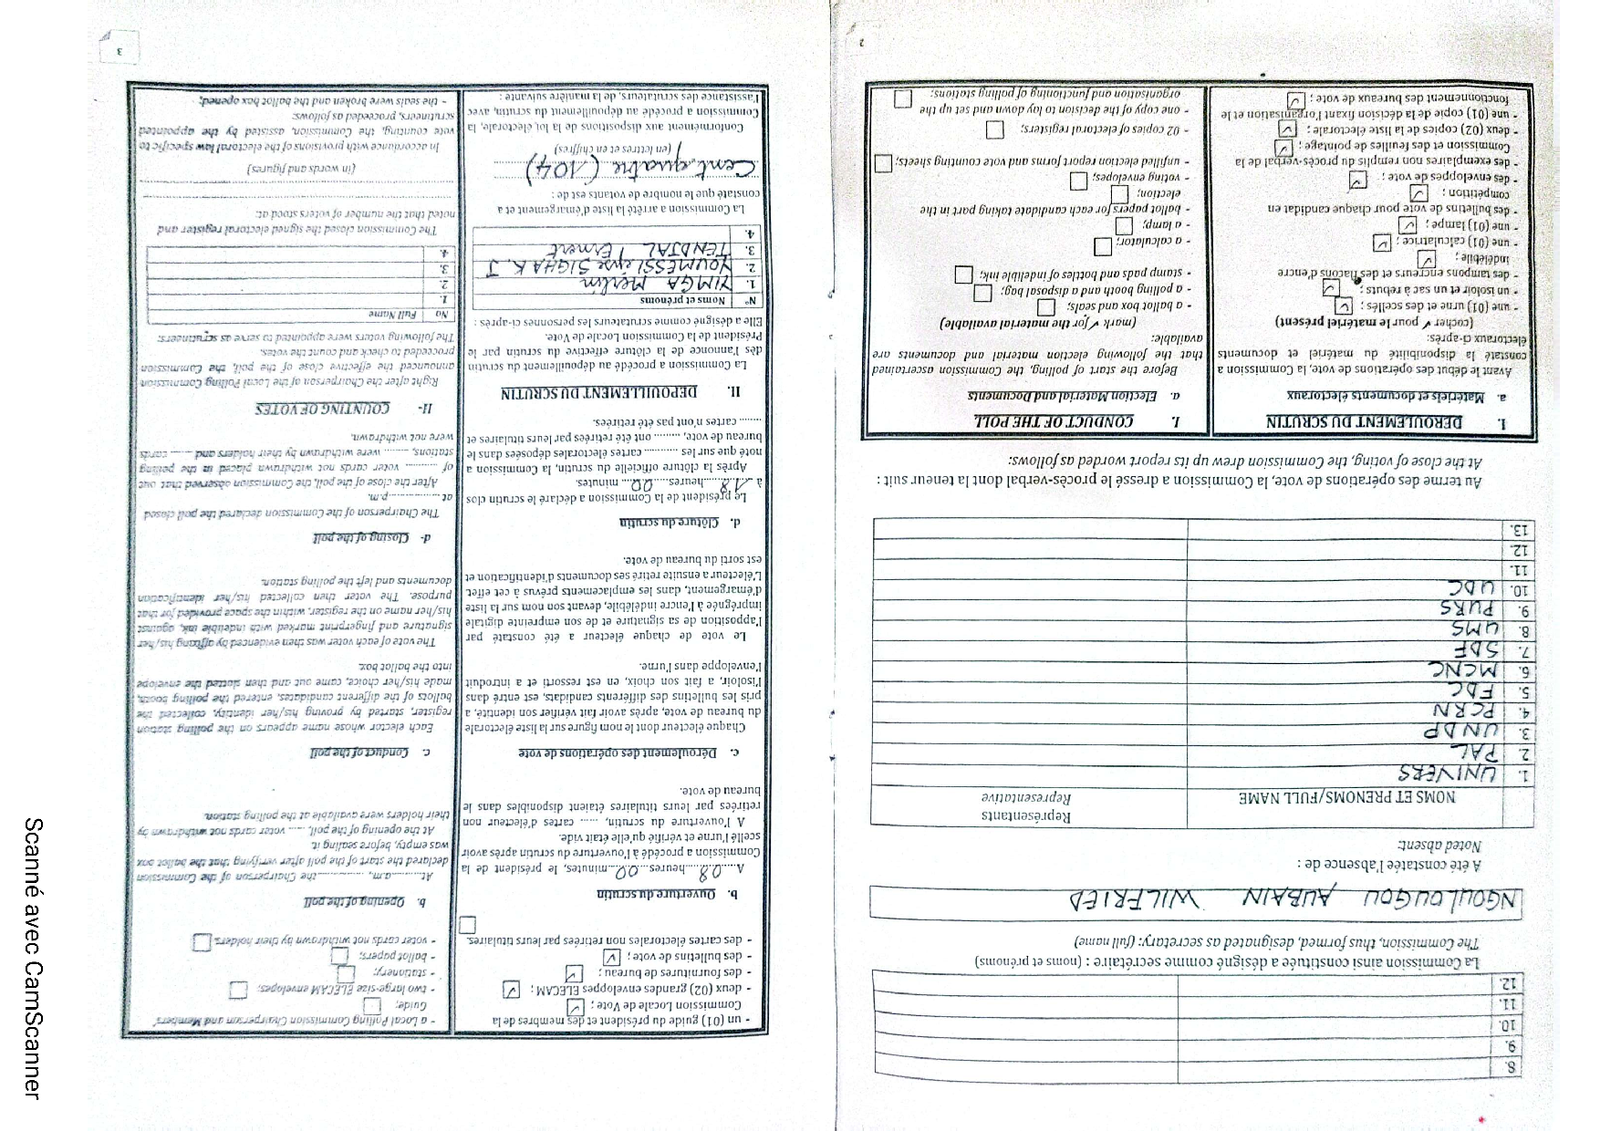 2
8.
9.
10.
11.
12.
La Commission ainsi constituée a désigné comme secrétaire : (noms et prénoms)
The Commission, thus formed, designated as secretary: (full name)
NGOULOUGOU AUBAIN WILFRIED
A été constatée l'absence de :
Noted absent:
NOMS ET PRENOMS/FULL NAME
Représentants
Representative
1. UNIVERS
2. PAL
3. UNDP
4. PCRN
5. FDC
6. MCNC
7. SDF
8. UMS
9. PURS
10. UDC
11.
12.
13.
Au terme des opérations de vote, la Commission a dressé le procès-verbal dont la teneur suit :
At the close of voting, the Commission drew up its report worded as follows:
I. DEROULEMENT DU SCRUTIN
a. Matériels et documents électoraux
Avant le début des opérations de vote, la Commission a
constaté la disponibilité du matériel et documents
électoraux ci-après:
(cocher ✓ pour le matériel présent)
- une (01) urne et des scellés ; ✓
- un isoloir et un sac à rebuts ; ✓
- des tampons encreurs et des flacons d'encre
indélébile ; ✓
- une (01) calculatrice ; ✓
- une (01) lampe ; ✓
- des bulletins de vote pour chaque candidat en
compétition ; ✓
- des enveloppes de vote ; ✓
- des exemplaires non remplis du procès-verbal de la
Commission et des feuilles de pointage ; ✓
- deux (02) copies de la liste électorale ; ✓
- une (01) copie de la décision fixant l'organisation et le
fonctionnement des bureaux de vote ; ✓
I. CONDUCT OF THE POLL
a. Election Material and Documents
Before the start of polling, the Commission ascertained
that the following election material and documents are
available:
(mark ✓ for the material available)
- a ballot box and seals;
- a polling booth and a disposal bag;
- stamp pads and bottles of indelible ink;
- a calculator;
- a lamp;
- ballot papers for each candidate taking part in the
election;
- voting envelopes;
- unfilled election report forms and vote counting sheets;
- 02 copies of electoral registers;
- one copy of the decision to lay down and set up the
organisation and functioning of polling stations;
3
- un (01) guide du président et des membres de la
Commission Locale de Vote ; ✓
- deux (02) grandes enveloppes ELECAM ; ✓
- des fournitures de bureau ; ✓
- des bulletins de vote ; ✓
- des cartes électorales non retirées par leurs titulaires.
b. Ouverture du scrutin
A ..08..heures..00..minutes, le président de la
Commission a procédé à l'ouverture du scrutin après avoir
scellé l'urne et vérifié qu'elle était vide.
A l'ouverture du scrutin, ...... cartes d'électeur non
retirées par leurs titulaires étaient disponibles dans le
bureau de vote.
c. Déroulement des opérations de vote
Chaque électeur dont le nom figure sur la liste électorale
du bureau de vote, après avoir fait vérifier son identité, a
pris les bulletins des différents candidats, est entré dans
l'isoloir, a fait son choix, en est ressorti et a introduit
l'enveloppe dans l'urne.
Le vote de chaque électeur a été constaté par
l'apposition de sa signature et de son empreinte digitale
imprégnée à l'encre indélébile, devant son nom sur la liste
d'émargement, dans les emplacements prévus à cet effet.
L'électeur a ensuite retiré ses documents d'identification et
est sorti du bureau de vote.
d. Clôture du scrutin
Le président de la Commission a déclaré le scrutin clos
à ..18..heures....00... minutes.
Après la clôture officielle du scrutin, la Commission a
noté que sur les .......... cartes électorales déposées dans le
bureau de vote, ........ ont été retirées par leurs titulaires et
....... cartes n'ont pas été retirées.
II. DEPOUILLEMENT DU SCRUTIN
La Commission a procédé au dépouillement du scrutin
dès l'annonce de la clôture effective du scrutin par le
Président de la Commission Locale de Vote.
Elle a désigné comme scrutateurs les personnes ci-après :
N° Noms et prénoms
1. Merlin
2.
3. TENDJAL
4.
La Commission a arrêté la liste d'émargement et a
constaté que le nombre de votants est de :
Cent quatre (104)
(en lettres et en chiffres)
Conformément aux dispositions de la loi électorale, la
Commission a procédé au dépouillement du scrutin, avec
l'assistance des scrutateurs, de la manière suivante :
- a Local Polling Commission Chairperson and Members'
Guide;
- two large-size ELECAM envelopes;
- stationery;
- ballot papers;
- voter cards not withdrawn by their holders.
b. Opening of the poll
At..........a.m, ..............the Chairperson of the Commission
declared the start of the poll after verifying that the ballot box
was empty, before sealing it.
At the opening of the poll, ...... voter cards not withdrawn by
their holders were available at the polling station.
c. Conduct of the poll
Each elector whose name appears on the polling station
register, started by proving his/her identity, collected the
ballots of the different candidates, entered the polling booth,
made his/her choice, came out and then slotted the envelope
into the ballot box.
The vote of each voter was then evidenced by affixing his/her
signature and fingerprint marked with indelible ink, against
his/her name on the register, within the space provided for that
purpose. The voter then collected his/her identification
documents and left the polling station.
d- Closing of the poll
The Chairperson of the Commission declared the poll closed
at .................p.m.
After the close of the poll, the Commission observed that out
of ......... voter cards not withdrawn placed in the polling
stations, ....... were withdrawn by their holders and ....... cards
were not withdrawn.
II- COUNTING OF VOTES
Right after the Chairperson of the Local Polling Commission
announced the effective close of the poll, the Commission
proceeded to check and count the votes.
The following voters were appointed to serve as scrutineers:
No Full Name
1.
2.
3.
4.
The Commission closed the signed electoral register and
noted that the number of voters stood at:
(in words and figures)
In accordance with provisions of the electoral law specific to
vote counting, the Commission, assisted by the appointed
scrutineers, proceeded as follows:
- the seals were broken and the ballot box opened;
Scanné avec CamScanner